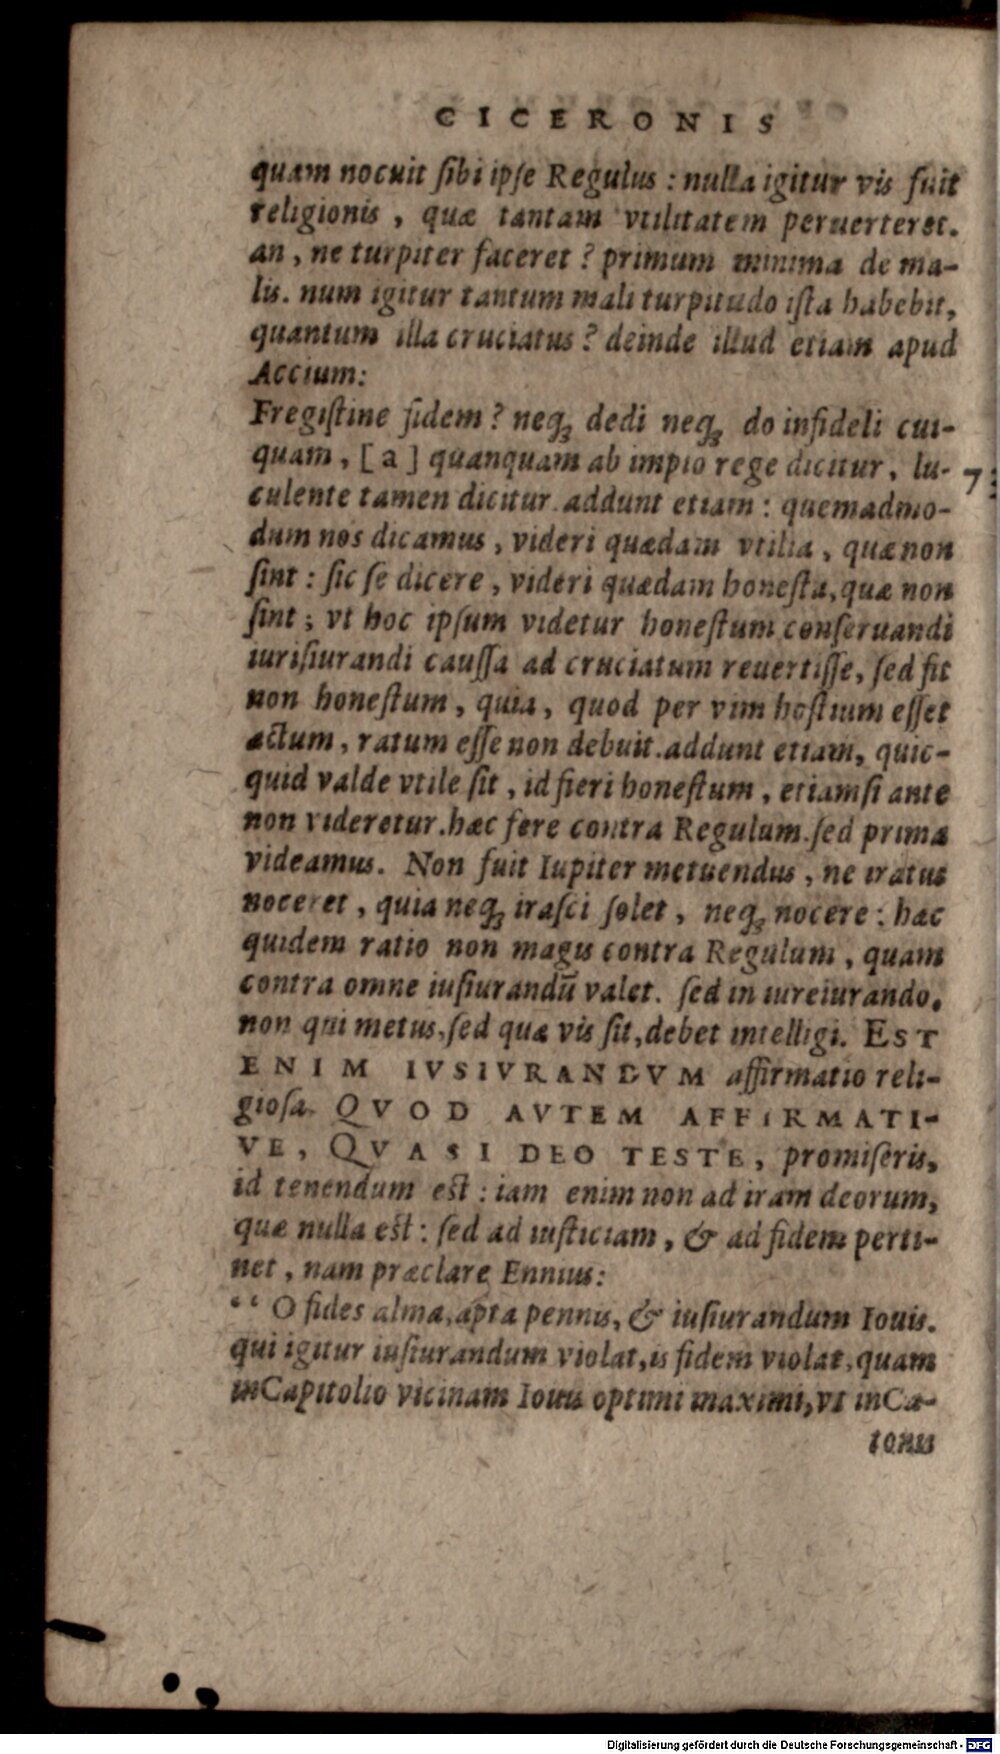 CICERONIS
quam nocuit ſibi ipſe Regulus : nulla igitur vis fuit
religionis , quæ tantam vtilitatem peruerteret.
an , ne turpiter faceret ? primum minima de ma-
lis. num igitur tantum mali turpitudo iſta habebit,
quantum illa cruciatus ? deinde illud etiam apud
Accium:
Fregiſtine fidem ? neq; dedi neq; do infideli cui-
quam , [ a ] quanquam ab impio rege dicitur , lu-
culente tamen dicitur. addunt etiam : quemadmo-
dum nos dicamus , videri quædam vtilia , quæ non
ſint : ſic ſe dicere , videri quædam honeſta, quæ non
ſint ; vt hoc ipſum videtur honeſtum conſeruandi
iuriſiurandi cauſſa ad cruciatum reuertiſſe, ſed fit
non honeſtum , quia , quod per vim hoſtium eſſet
actum , ratum eſſe non debuit. addunt etiam, quic-
quid valde vtile ſit , id fieri honeſtum , etiamſi ante
non videretur. hæc fere contra Regulum. ſed prima
videamus. Non fuit Iupiter metuendus , ne iratus
noceret , quia neq; iraſci ſolet , neq; nocere : hæc
quidem ratio non magis contra Regulum , quam
contra omne iuſiurandū valet. ſed in iureiurando,
non qui metus, ſed quæ vis ſit, debet intelligi. EST
ENIM IVSIVRANDVM affirmatio reli-
gioſa. QVOD AVTEM AFFIRMATI-
VE, QVASI DEO TESTE, promiſeris,
id tenendum eſt : iam enim non ad iram deorum,
quæ nulla eſt : ſed ad iuſticiam , & ad fidem perti-
net , nam præclare Ennius:
“ O fides alma, apta pennis, & iuſiurandum Iouis.
qui igitur iuſiurandum violat, is fidem violat, quam
in Capitolio vicinam Iouis optimi maximi, vt in Ca-
tonis
7
Digitalisierung gefördert durch die Deutsche Forschungsgemeinschaft - DFG